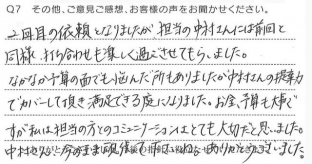 Q7 その他、ご意見ご感想、お客様の声をお聞かせください。
二回目の依頼となりましたが担当の中村さんには前回と
同様、打ち合わせも楽しく過ごさせてもらいました。
なかなか予算の面でも悩んだ所もありましたが中村さんの提案力
でカバーして頂き満足できる庭になりました。お金、予算も大事で
すが私は担当の方とのコミュニケーションはとても大切だと思いました。
中村さん、今のまま頑張って下さいね。ありがとうございました。